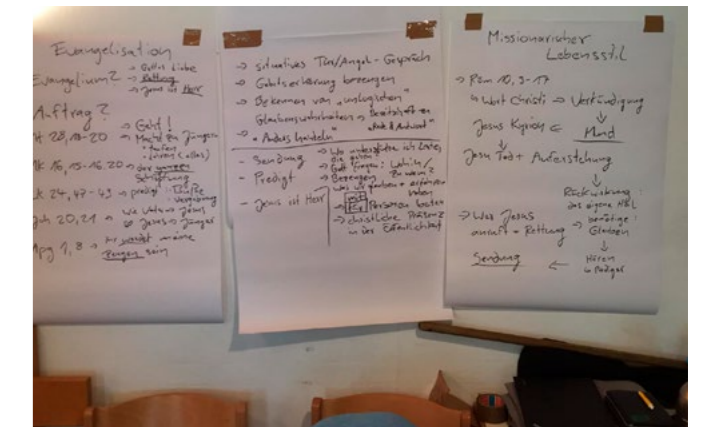 Evangelisation
Evangelium? → Gottes Liebe
→ Rettung
→ Jesus ist Herr
Auftrag?
28,18-20 → Geht!
→ Macht zu Jüngern
- taufen
- lehren (alles)
16,15-16.20 → der ganzen
Schöpfung
Lk 24,47-49 → predigt: Buße
Vergebung
Joh 20,21 → Wie Vater → Jesus
Jesus → Jünger
Apg 1,8 → Ihr werdet meine
Zeugen sein
→ situatives Tür/Angel-Gespräch
→ Gebetserhörung bezeugen
→ Bekennen von "unlogischen"
Glaubenswahrheiten
→ Bereitschaft zu
"Rede & Antwort"
→ "Anders handeln"
- Sendung
- Predigt
- Jesus ist Herr
→ Wo unterstütze ich Leute,
die gehen?
→ Gott fragen: Wohin/
Zu wem?
→ Bezeugen
was wir glauben + erfahren
haben
→ Personen beten
→ christliche Präsenz
in der Öffentlichkeit
Missionarischer
Lebensstil
→ Röm 10,9-17
↳ Wort Christi → Verkündigung
Jesus Kyrios ← Mund
Jesu Tod + Auferstehung
Rückwirkung:
das eigene
→ Wer Jesus
anruft = Rettung →
benötige:
Glauben
Hören
↳ Prediger
Sendung ←